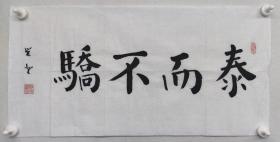 泰而不驕